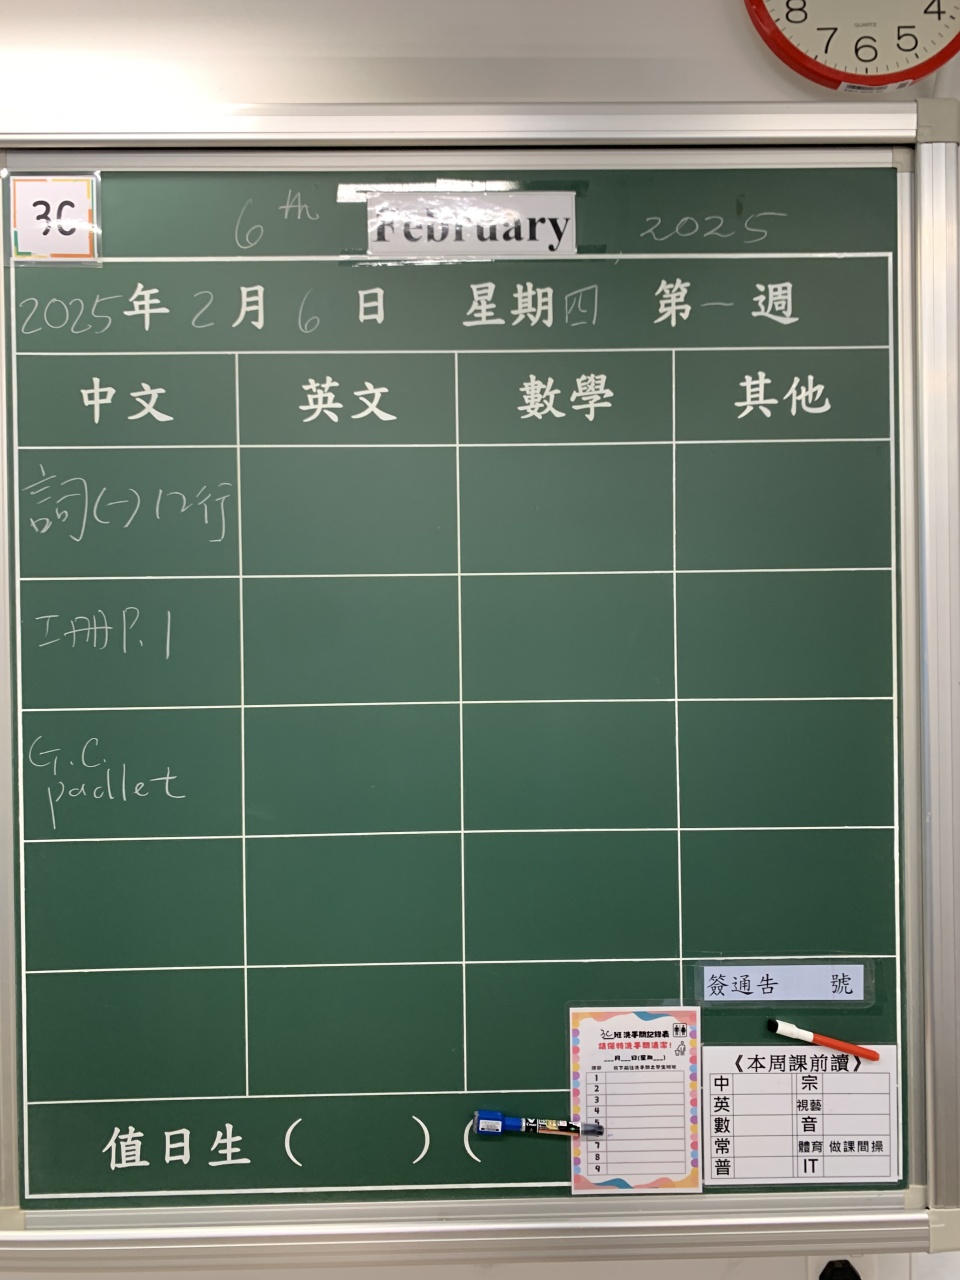 8 7 6 5 4
QUARTZ
3C
6th February, 2025
2025年2月6日 星期四 第一週
中文 英文 數學 其他
詞(一)12行
工冊P.1
G.C.
padlet
簽通告 號
3C班 洗手間記錄表
請保持洗手間清潔!
___月___日(星期___)
1
2
3
4
7
8
9
《本周課前讀》
中 宗
英 視藝
數 音
常 體育 做課間操
普 IT
值日生( )(